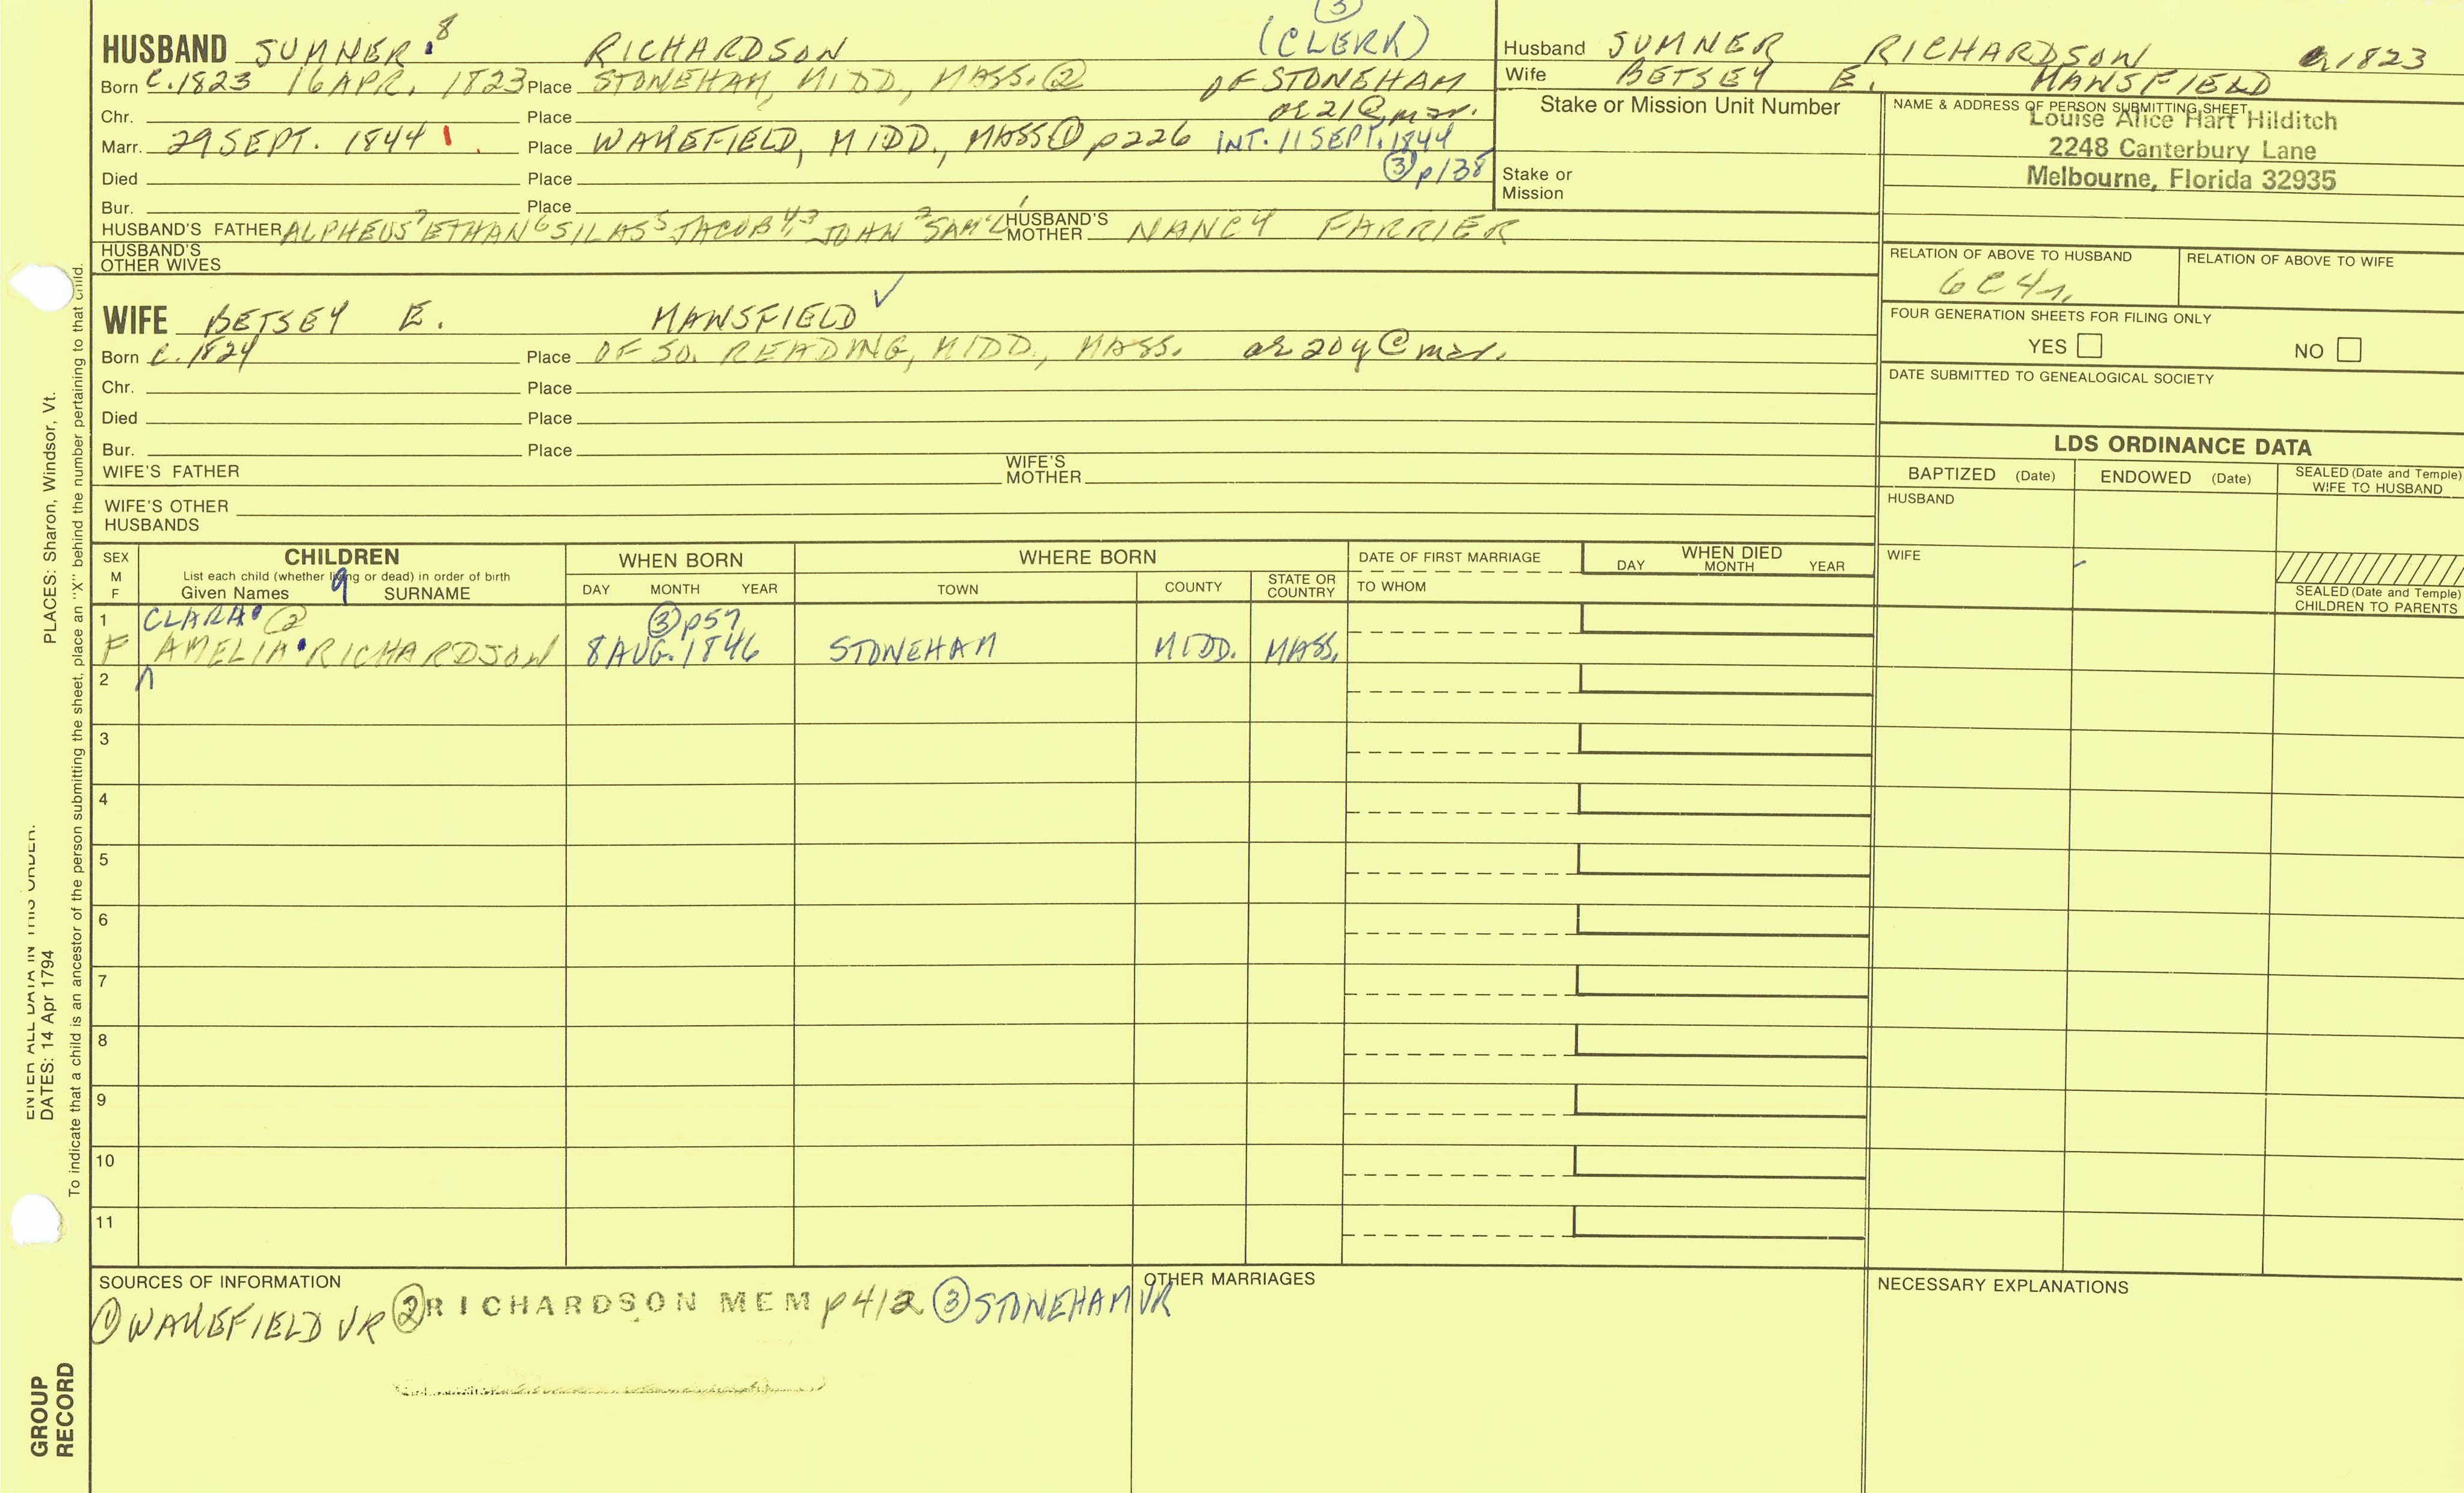 ③
HUSBAND SUMNER 8 RICHARDSON (CLERK)
Born c.1823 16 APR. 1823 Place STONEHAM, MIDD., MASS. ② OF STONEHAM
Chr. Place ae 21 @ mar.
Marr. 29 SEPT. 1844 Place WAKEFIELD, MIDD., MASS ① p226 INT. 11 SEPT. 1844
Died Place ③ p138
Bur. Place
HUSBAND'S FATHER ALPHEUS 7 ETHAN 6 SILAS 5 JACOB 4,3 JOHN 2 SAM'L 1 HUSBAND'S MOTHER NANCY FARRIER
HUSBAND'S
OTHER WIVES
WIFE BETSEY E. MANSFIELD ✓
Born c.1824 Place OF SO. READING, MIDD., MASS. ae 20y @ mar.
Chr. Place
Died Place
Bur. Place
WIFE'S FATHER WIFE'S MOTHER
WIFE'S OTHER
HUSBANDS
Husband SUMNER RICHARDSON 1823
Wife BETSEY E. MANSFIELD
Stake or Mission Unit Number
Stake or
Mission
NAME & ADDRESS OF PERSON SUBMITTING SHEET
Louise Alice Hart Hilditch
2248 Canterbury Lane
Melbourne, Florida 32935
RELATION OF ABOVE TO HUSBAND RELATION OF ABOVE TO WIFE
6C4r.
FOUR GENERATION SHEETS FOR FILING ONLY
YES NO
DATE SUBMITTED TO GENEALOGICAL SOCIETY
LDS ORDINANCE DATA
BAPTIZED (Date) ENDOWED (Date) SEALED (Date and Temple)
WIFE TO HUSBAND
HUSBAND
WIFE
SEALED (Date and Temple)
CHILDREN TO PARENTS
SEX CHILDREN WHEN BORN WHERE BORN DATE OF FIRST MARRIAGE WHEN DIED
M List each child (whether living or dead) in order of birth DAY MONTH YEAR
F Given Names 9 SURNAME DAY MONTH YEAR TOWN COUNTY STATE OR COUNTRY TO WHOM
1 CLARA ② ③ p57
F AMELIA RICHARDSON 8 AUG. 1846 STONEHAM MIDD. MASS.
2
3
4
5
6
7
8
9
10
11
SOURCES OF INFORMATION
① WAKEFIELD VR ② RICHARDSON MEM p412 ③ STONEHAM VR
OTHER MARRIAGES
NECESSARY EXPLANATIONS
ENTER ALL DATA IN THIS ORDER:
DATES: 14 Apr 1794 PLACES: Sharon, Windsor, Vt.
To indicate that a child is an ancestor of the person submitting the sheet, place an "X" behind the number pertaining to that child.
GROUP
RECORD